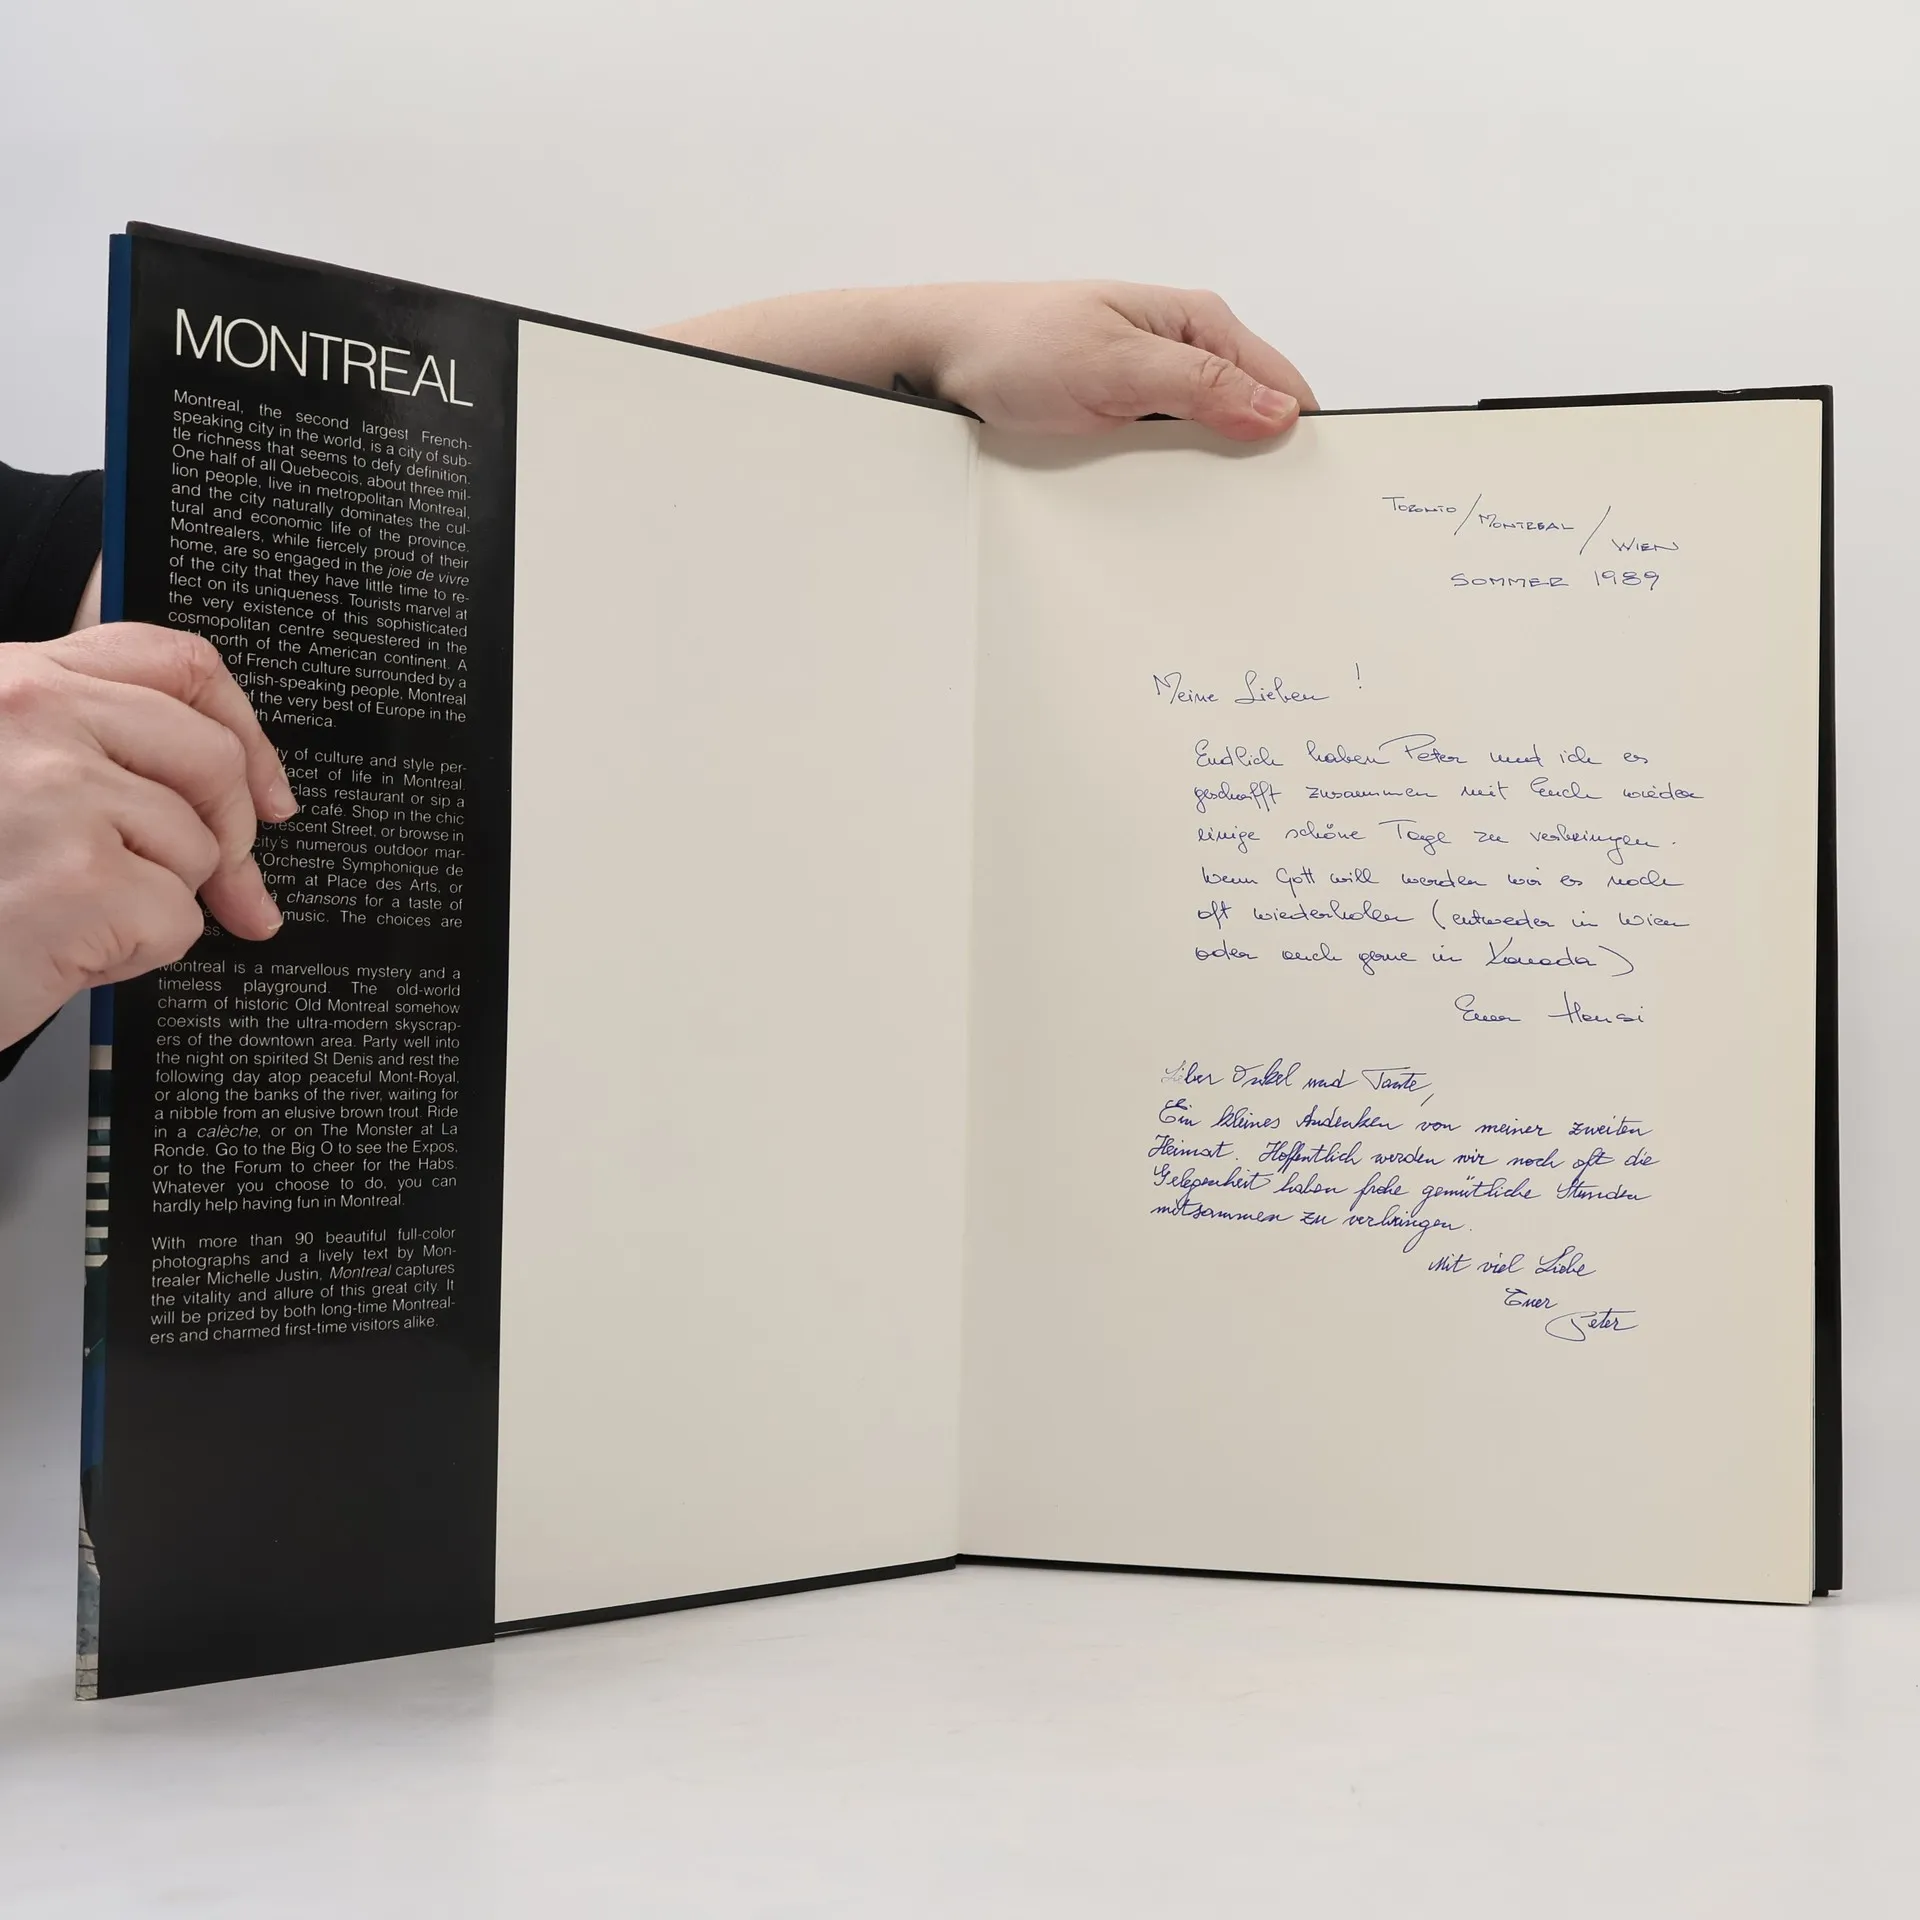 MONTREAL
Montreal, the second largest French-
speaking city in the world, is a city of sub-
tle richness that seems to defy definition.
One half of all Quebecois, about three mil-
lion people, live in metropolitan Montreal,
and the city naturally dominates the cul-
tural and economic life of the province.
Montrealers, while fiercely proud of their
home, are so engaged in the joie de vivre
of the city that they have little time to re-
flect on its uniqueness. Tourists marvel at
the very existence of this sophisticated
cosmopolitan centre sequestered in the
north of the American continent. A
of French culture surrounded by a
nglish-speaking people, Montreal
of the very best of Europe in the
th America.
ty of culture and style per-
facet of life in Montreal.
class restaurant or sip a
or café. Shop in the chic
Crescent Street, or browse in
city's numerous outdoor mar-
L'Orchestre Symphonique de
form at Place des Arts, or
à chansons for a taste of
music. The choices are
ss.
Montreal is a marvellous mystery and a
timeless playground. The old-world
charm of historic Old Montreal somehow
coexists with the ultra-modern skyscrap-
ers of the downtown area. Party well into
the night on spirited St Denis and rest the
following day atop peaceful Mont-Royal,
or along the banks of the river, waiting for
a nibble from an elusive brown trout. Ride
in a calèche, or on The Monster at La
Ronde. Go to the Big O to see the Expos,
or to the Forum to cheer for the Habs.
Whatever you choose to do, you can
hardly help having fun in Montreal.
With more than 90 beautiful full-color
photographs and a lively text by Mon-
trealer Michelle Justin, Montreal captures
the vitality and allure of this great city. It
will be prized by both long-time Montreal-
ers and charmed first-time visitors alike.
TORONTO / MONTREAL /
WIEN
SOMMER 1989
Meine Lieben !
Endlich haben Peter und ich es
geschafft zusammen mit Euch wieder
einige schöne Tage zu verbringen.
Wenn Gott will werden wir es noch
oft wiederholen (entweder in Wien
oder auch gerne in Kanada)
Euer Hansi
Lieber Onkel und Tante,
Ein kleines Andenken von meiner zweiten
Heimat. Hoffentlich werden wir noch oft die
Gelegenheit haben frohe gemütliche Stunden
mitsammen zu verbringen.
Mit viel Liebe
Euer
Peter